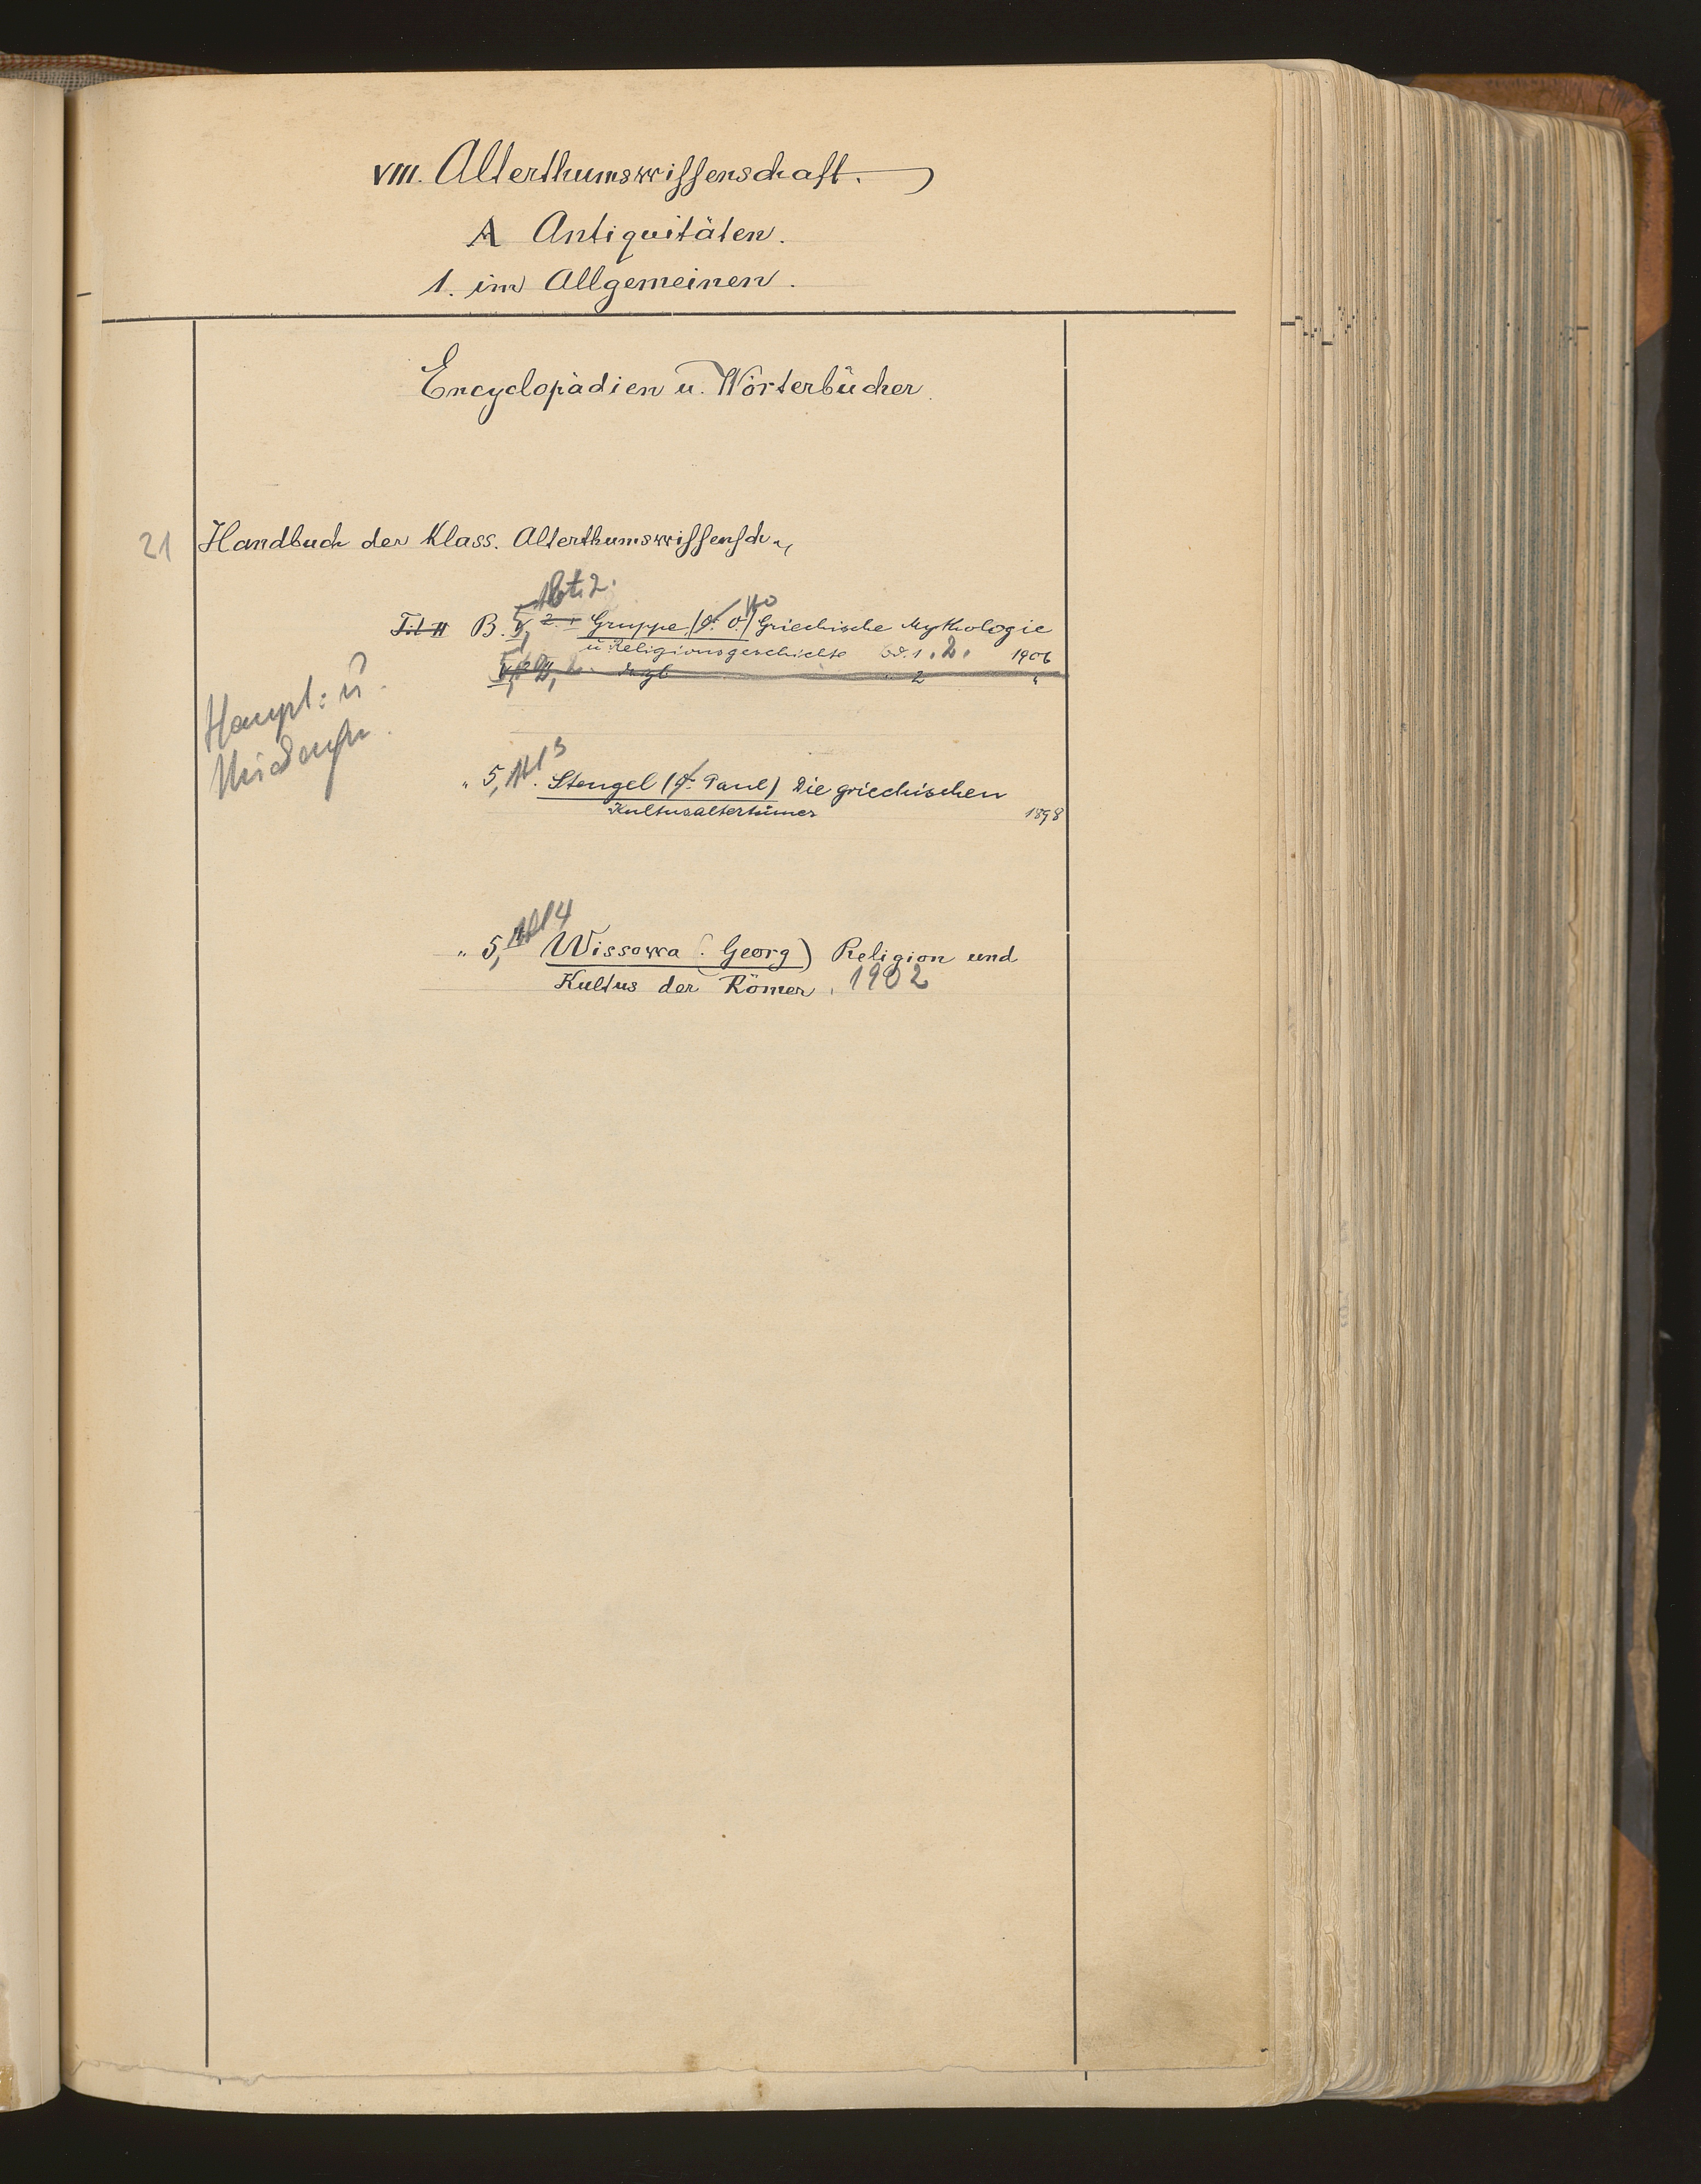 VIII. Alterthumswissenschaft.
A Antiquitäten.
1. im Allgemeinen.
Encyclopädien u. Wörterbücher.
21 Handbuch der Klass. Alterthumswissensch.,
Abt. 2.
Tit II B. 5, 2. Gruppe, (O.) Griechische Mythologie
u Religionsgeschichte Bd. 1. 2. 1906
2 "
Haupt: u.
" 5, Abt 3 Stengel (Paul) Die griechischen
Kultusaltertümer 1898
" 5, Abt 4 Wissowa (Georg) Religion und
Kultus der Römer. 1902